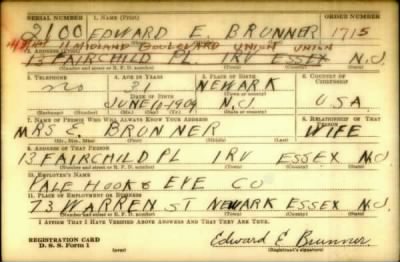 SERIAL NUMBER 1. NAME (Print) ORDER NUMBER
2100 EDWARD E. BRUNNER 1715
MIDLAND BOULEVARD UNION UNION
2. ADDRESS (Print)
13 FAIRCHILD PL IRV ESSEX N.J.
3. TELEPHONE 4. AGE IN YEARS 5. PLACE OF BIRTH 6. COUNTRY OF CITIZENSHIP
no 31 NEWARK
DATE OF BIRTH
JUNE 10-1909 N.J U.S.A.
7. NAME OF PERSON WHO WILL ALWAYS KNOW YOUR ADDRESS 8. RELATIONSHIP OF THAT PERSON
MRS E. BRUNNER WIFE
(Mr., Mrs., Miss) (First) (Middle) (Last)
9. ADDRESS OF THAT PERSON
13 FAIRCHILD PL IRV ESSEX N.J
(Number and street or R. F. D. number) (Town) (County) (State)
10. EMPLOYER'S NAME
HOOK & EYE CO
11. PLACE OF EMPLOYMENT OR BUSINESS
73 WARREN ST NEWARK ESSEX N.J
(Number and street or R. F. D. number) (Town) (County) (State)
I AFFIRM THAT I HAVE VERIFIED ABOVE ANSWERS AND THAT THEY ARE TRUE.
REGISTRATION CARD
D. S. S. Form 1 (over) Edward E Brunner
(Registrant's signature)